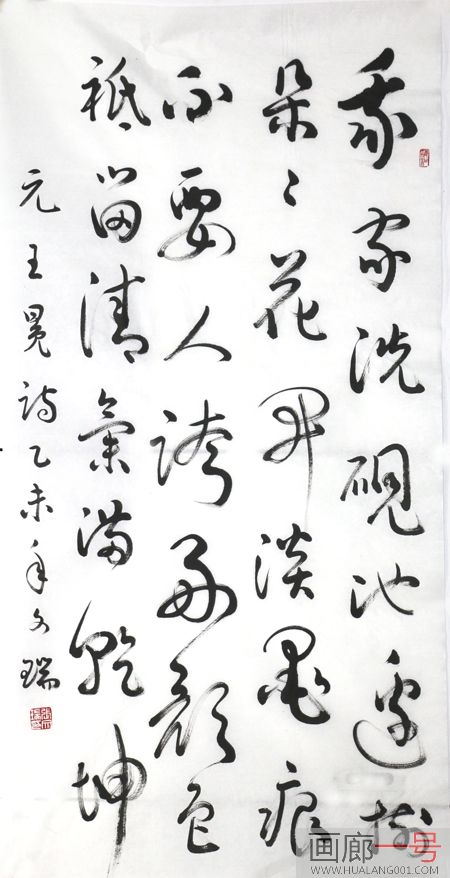 我家洗硯池邊樹
朵々花開淡墨痕
不要人誇好顏色
祗留清氣滿乾坤
元王冕詩乙未年文瑞
画廊一号
WWW.HUALANG001.COM